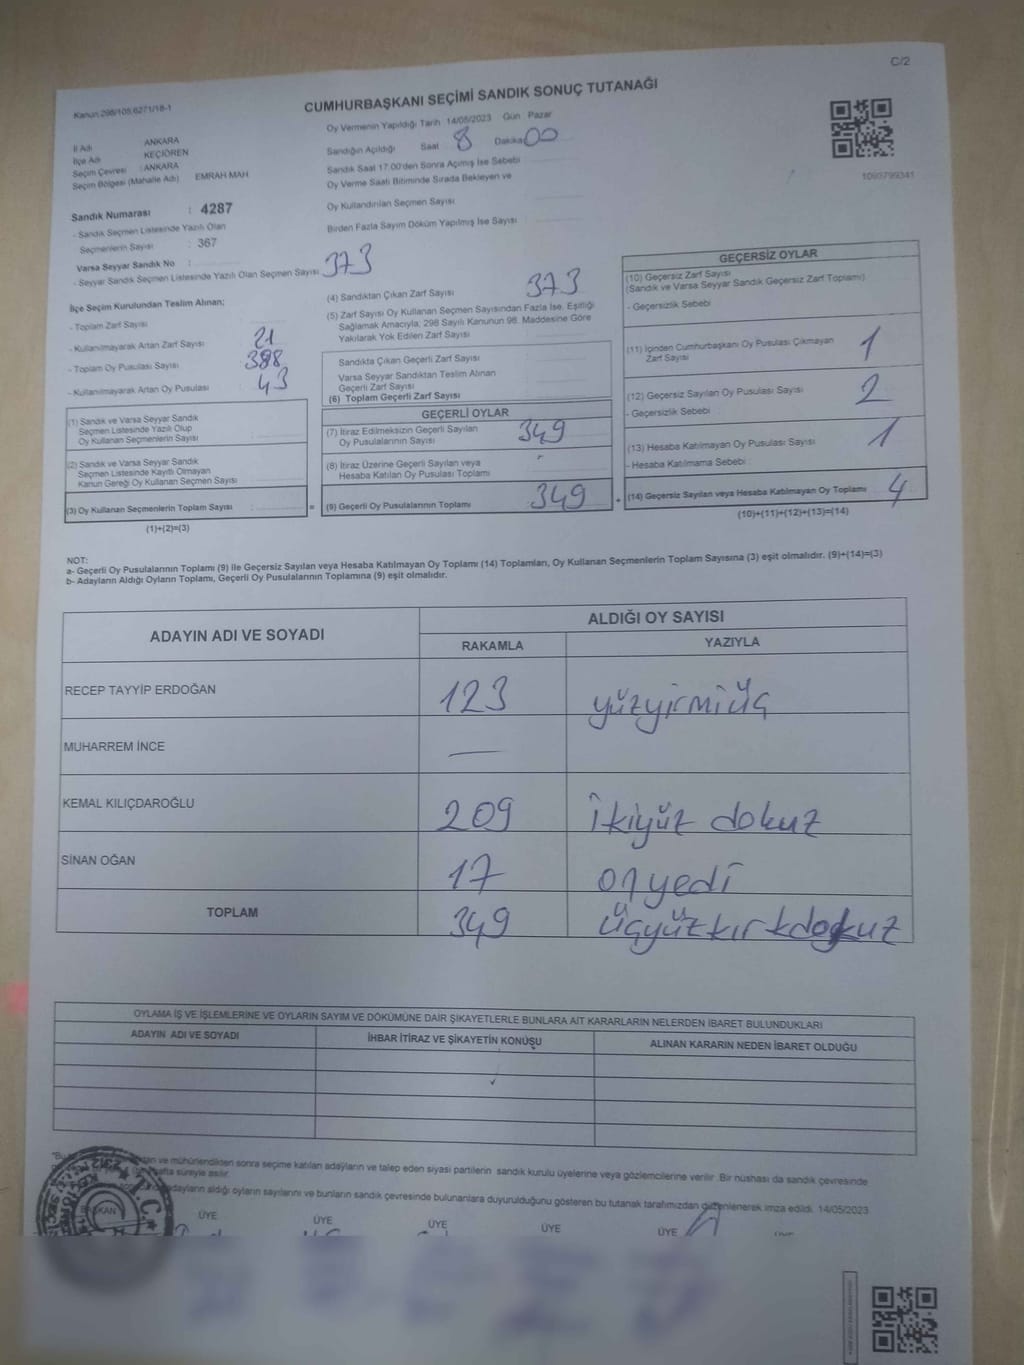 C/2
Kanun:298/105;6271/18-1
CUMHURBAŞKANI SEÇİMİ SANDIK SONUÇ TUTANAĞI
İl Adı ANKARA
İlçe Adı KEÇİÖREN
Seçim Çevresi : ANKARA
Seçim Bölgesi (Mahalle Adı) EMRAH MAH
Sandık Numarası : 4287
- Sandık Seçmen Listesinde Yazılı Olan
Seçmenlerin Sayısı : 367
Varsa Seyyar Sandık No :
- Seyyar Sandık Seçmen Listesinde Yazılı Olan Seçmen Sayısı
Oy Vermenin Yapıldığı Tarih 14/05/2023 Gün Pazar
Sandığın Açıldığı Saat 8 Dakika 00
Sandık Saat 17:00'den Sonra Açımış İse Sebebi
Oy Verme Saati Bitiminde Sırada Bekleyen ve
Oy Kullandırılan Seçmen Sayısı
Birden Fazla Sayım Döküm Yapılmış İse Sayısı
1090799341
İlçe Seçim Kurulundan Teslim Alınan;
- Toplam Zarf Sayısı 373
- Kullanılmayarak Artan Zarf Sayısı 21
- Toplam Oy Pusulası Sayısı 398
- Kullanılmayarak Artan Oy Pusulası 43
(1) Sandık ve Varsa Seyyar Sandık
Seçmen Listesinde Yazılı Olup
Oy Kullanan Seçmenlerin Sayısı :
(2) Sandık ve Varsa Seyyar Sandık
Seçmen Listesinde Kayıtlı Olmayan
Kanun Gereği Oy Kullanan Seçmen Sayısı :
(3) Oy Kullanan Seçmenlerin Toplam Sayısı : =
(1)+(2)=(3)
(4) Sandıktan Çıkan Zarf Sayısı 373
(5) Zarf Sayısı Oy Kullanan Seçmen Sayısından Fazla İse, Eşitliği
Sağlamak Amacıyla, 298 Sayılı Kanunun 98. Maddesine Göre
Yakılarak Yok Edilen Zarf Sayısı
Sandıkta Çıkan Geçerli Zarf Sayısı
Varsa Seyyar Sandıktan Teslim Alınan
Geçerli Zarf Sayısı
(6) Toplam Geçerli Zarf Sayısı
GEÇERLİ OYLAR
(7) İtiraz Edilmeksizin Geçerli Sayılan
Oy Pusulalarının Sayısı 349
(8) İtiraz Üzerine Geçerli Sayılan veya
Hesaba Katılan Oy Pusulası Toplamı
(9) Geçerli Oy Pusulalarının Toplamı 349 +
GEÇERSİZ OYLAR
(10) Geçersiz Zarf Sayısı
(Sandık ve Varsa Seyyar Sandık Geçersiz Zarf Toplamı)
- Geçersizlik Sebebi
(11) İçinden Cumhurbaşkanı Oy Pusulası Çıkmayan
Zarf Sayısı 1
(12) Geçersiz Sayılan Oy Pusulası Sayısı 2
- Geçersizlik Sebebi
(13) Hesaba Katılmayan Oy Pusulası Sayısı 1
- Hesaba Katılmama Sebebi
(14) Geçersiz Sayılan veya Hesaba Katılmayan Oy Toplamı 4
(10)+(11)+(12)+(13)=(14)
NOT:
a- Geçerli Oy Pusulalarının Toplamı (9) ile Geçersiz Sayılan veya Hesaba Katılmayan Oy Toplamı (14) Toplamları, Oy Kullanan Seçmenlerin Toplam Sayısına (3) eşit olmalıdır. (9)+(14)=(3)
b- Adayların Aldığı Oyların Toplamı, Geçerli Oy Pusulalarının Toplamına (9) eşit olmalıdır.
ADAYIN ADI VE SOYADI ALDIĞI OY SAYISI
RAKAMLA YAZIYLA
RECEP TAYYİP ERDOĞAN 123 yüzyirmiüç
MUHARREM İNCE —
KEMAL KILIÇDAROĞLU 209 ikiyüz dokuz
SİNAN OĞAN 17 onyedi
TOPLAM 349 üçyüzkırkdokuz
OYLAMA İŞ VE İŞLEMLERİNE VE OYLARIN SAYIM VE DÖKÜMÜNE DAİR ŞİKAYETLERLE BUNLARA AİT KARARLARIN NELERDEN İBARET BULUNDUKLARI
ADAYIN ADI VE SOYADI İHBAR İTİRAZ VE ŞİKAYETİN KONUSU ALINAN KARARIN NEDEN İBARET OLDUĞU
ve mühürlendikten sonra seçime katılan adayların ve talep eden siyasi partilerin sandık kurulu üyelerine veya gözlemcilerine verilir. Bir nüshası da sandık çevresinde
hafta süreyle asılır.
adayların aldığı oyların sayılarını ve bunların sandık çevresinde bulunanlara duyurulduğunu gösteren bu tutanak tarafımızdan düzenlenerek imza edildi. 14/05/2023
BAŞKAN ÜYE ÜYE ÜYE ÜYE ÜYE ÜYE
T.C.